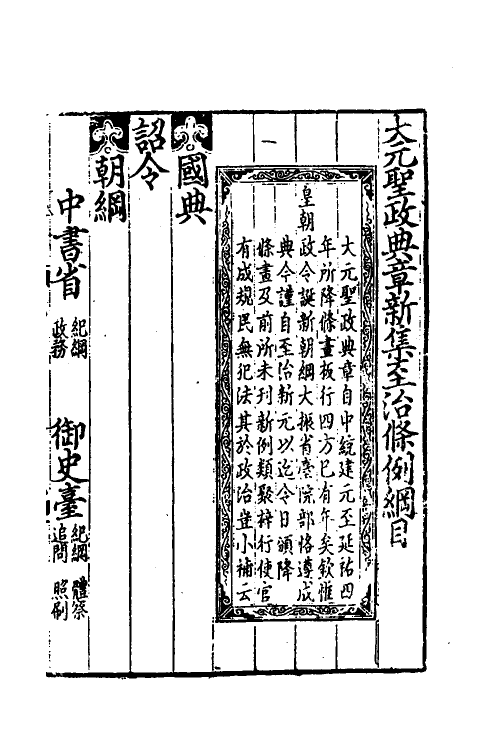 大元聖政典章新集至治條例綱目
大元聖政典章自中統建元至延祐四
年所降條畫板行四方已有年矣欽惟
皇朝政令誕新朝綱大振省臺院部恪遵成
典今謹自至治新元以迄今日頒降
條畫及前所未刊新例類聚梓行使官
有成規民無犯法其於政治豈小補云
國典
詔令
朝綱
中書省 紀綱 政務 御史臺 紀綱 追問 體察 照刷